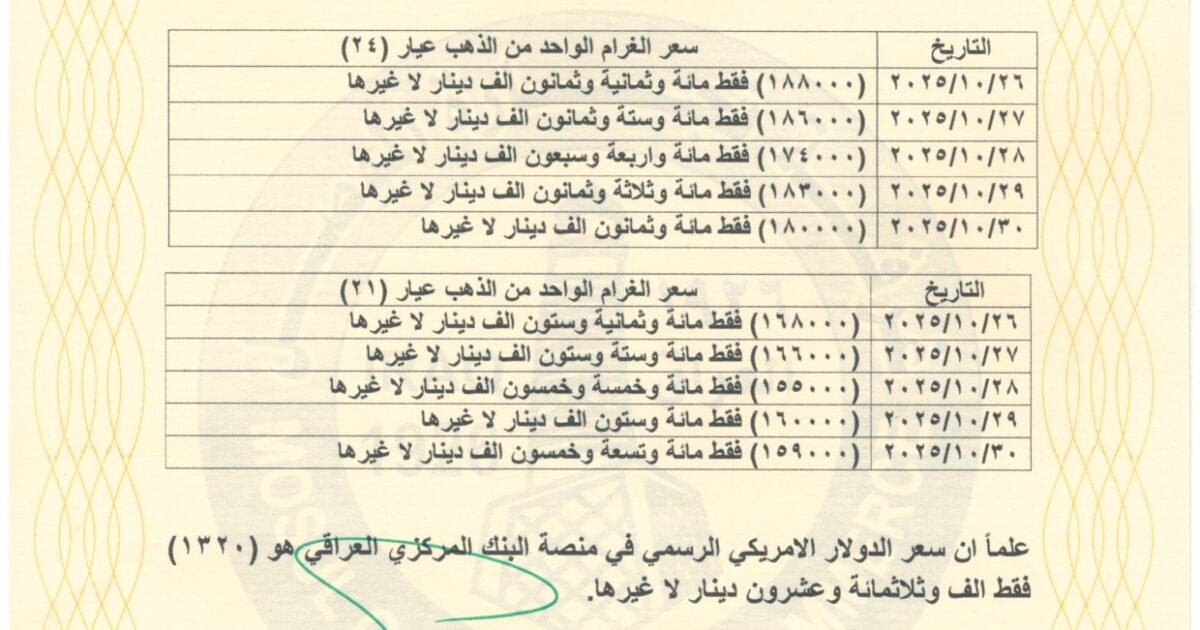 التاريخ سعر الغرام الواحد من الذهب عيار (٢٤)
٢٠٢٥/١٠/٢٦ (١٨٨٠٠٠) فقط مائة وثمانية وثمانون الف دينار لا غيرها
٢٠٢٥/١٠/٢٧ (١٨٦٠٠٠) فقط مائة وستة وثمانون الف دينار لا غيرها
٢٠٢٥/١٠/٢٨ (١٧٤٠٠٠) فقط مائة واربعة وسبعون الف دينار لا غيرها
٢٠٢٥/١٠/٢٩ (١٨٣٠٠٠) فقط مائة وثلاثة وثمانون الف دينار لا غيرها
٢٠٢٥/١٠/٣٠ (١٨٠٠٠٠) فقط مائة وثمانون الف دينار لا غيرها
التاريخ سعر الغرام الواحد من الذهب عيار (٢١)
٢٠٢٥/١٠/٢٦ (١٦٨٠٠٠) فقط مائة وثمانية وستون الف دينار لا غيرها
٢٠٢٥/١٠/٢٧ (١٦٦٠٠٠) فقط مائة وستة وستون الف دينار لا غيرها
٢٠٢٥/١٠/٢٨ (١٥٥٠٠٠) فقط مائة وخمسة وخمسون الف دينار لا غيرها
٢٠٢٥/١٠/٢٩ (١٦٠٠٠٠) فقط مائة وستون الف دينار لا غيرها
٢٠٢٥/١٠/٣٠ (١٥٩٠٠٠) فقط مائة وتسعة وخمسون الف دينار لا غيرها
علماً ان سعر الدولار الامريكي الرسمي في منصة البنك المركزي العراقي هو (١٣٢٠)
فقط الف وثلاثمائة وعشرون دينار لا غيرها.